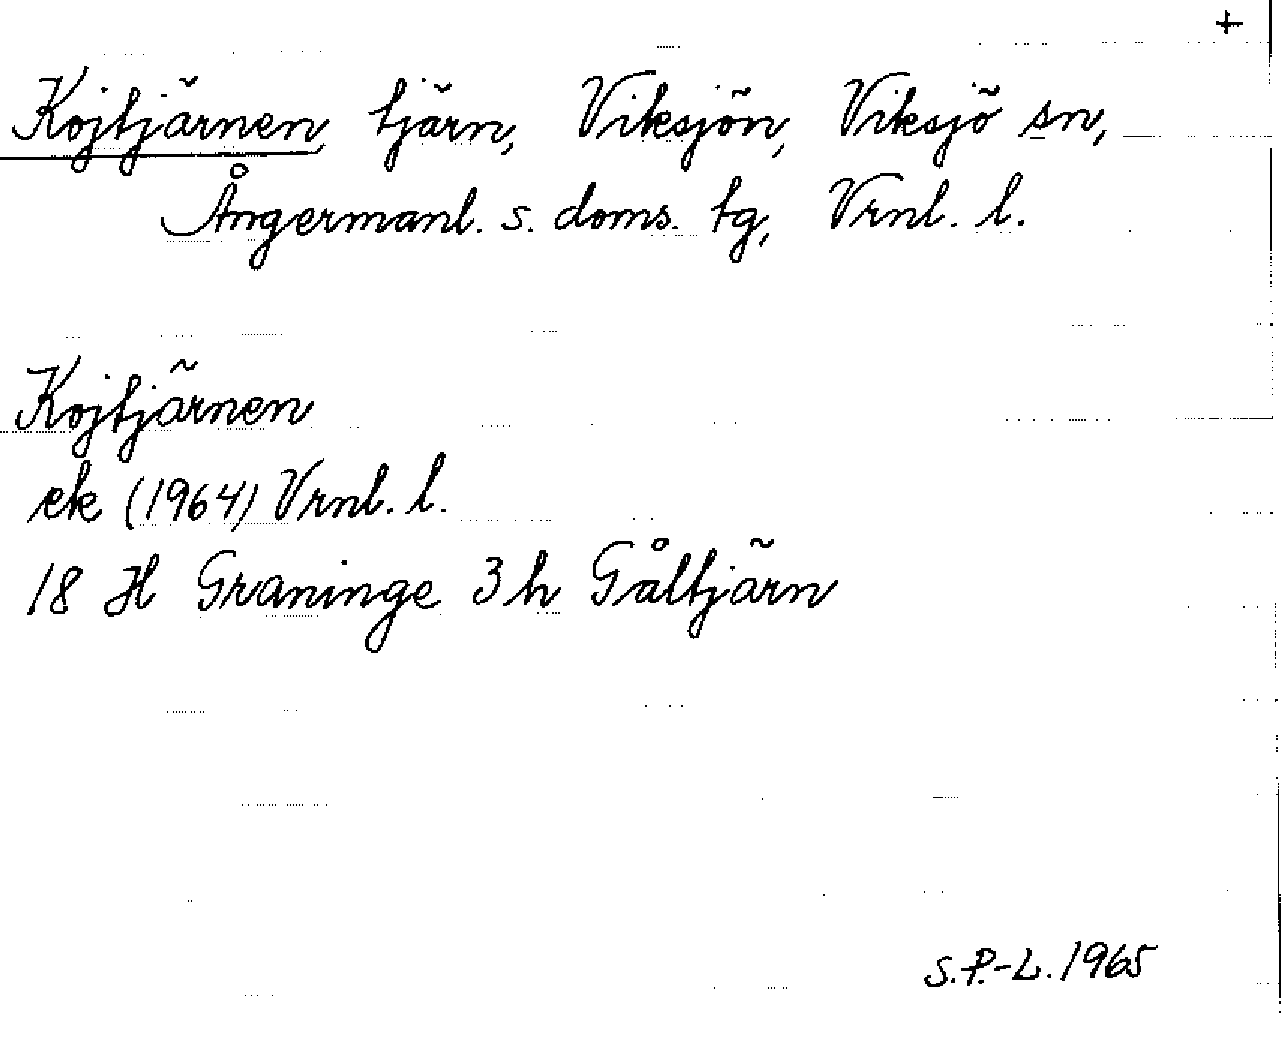 +
Kojtjärnen, tjärn, Viksjön, Viksjö sn,
Ångermanl. s. doms. tg, Vrnl. l.
Kojtjärnen
ek (1964) Vrnl. l.
18 H Graninge 3 h Gåltjärn
S.P.-L. 1965